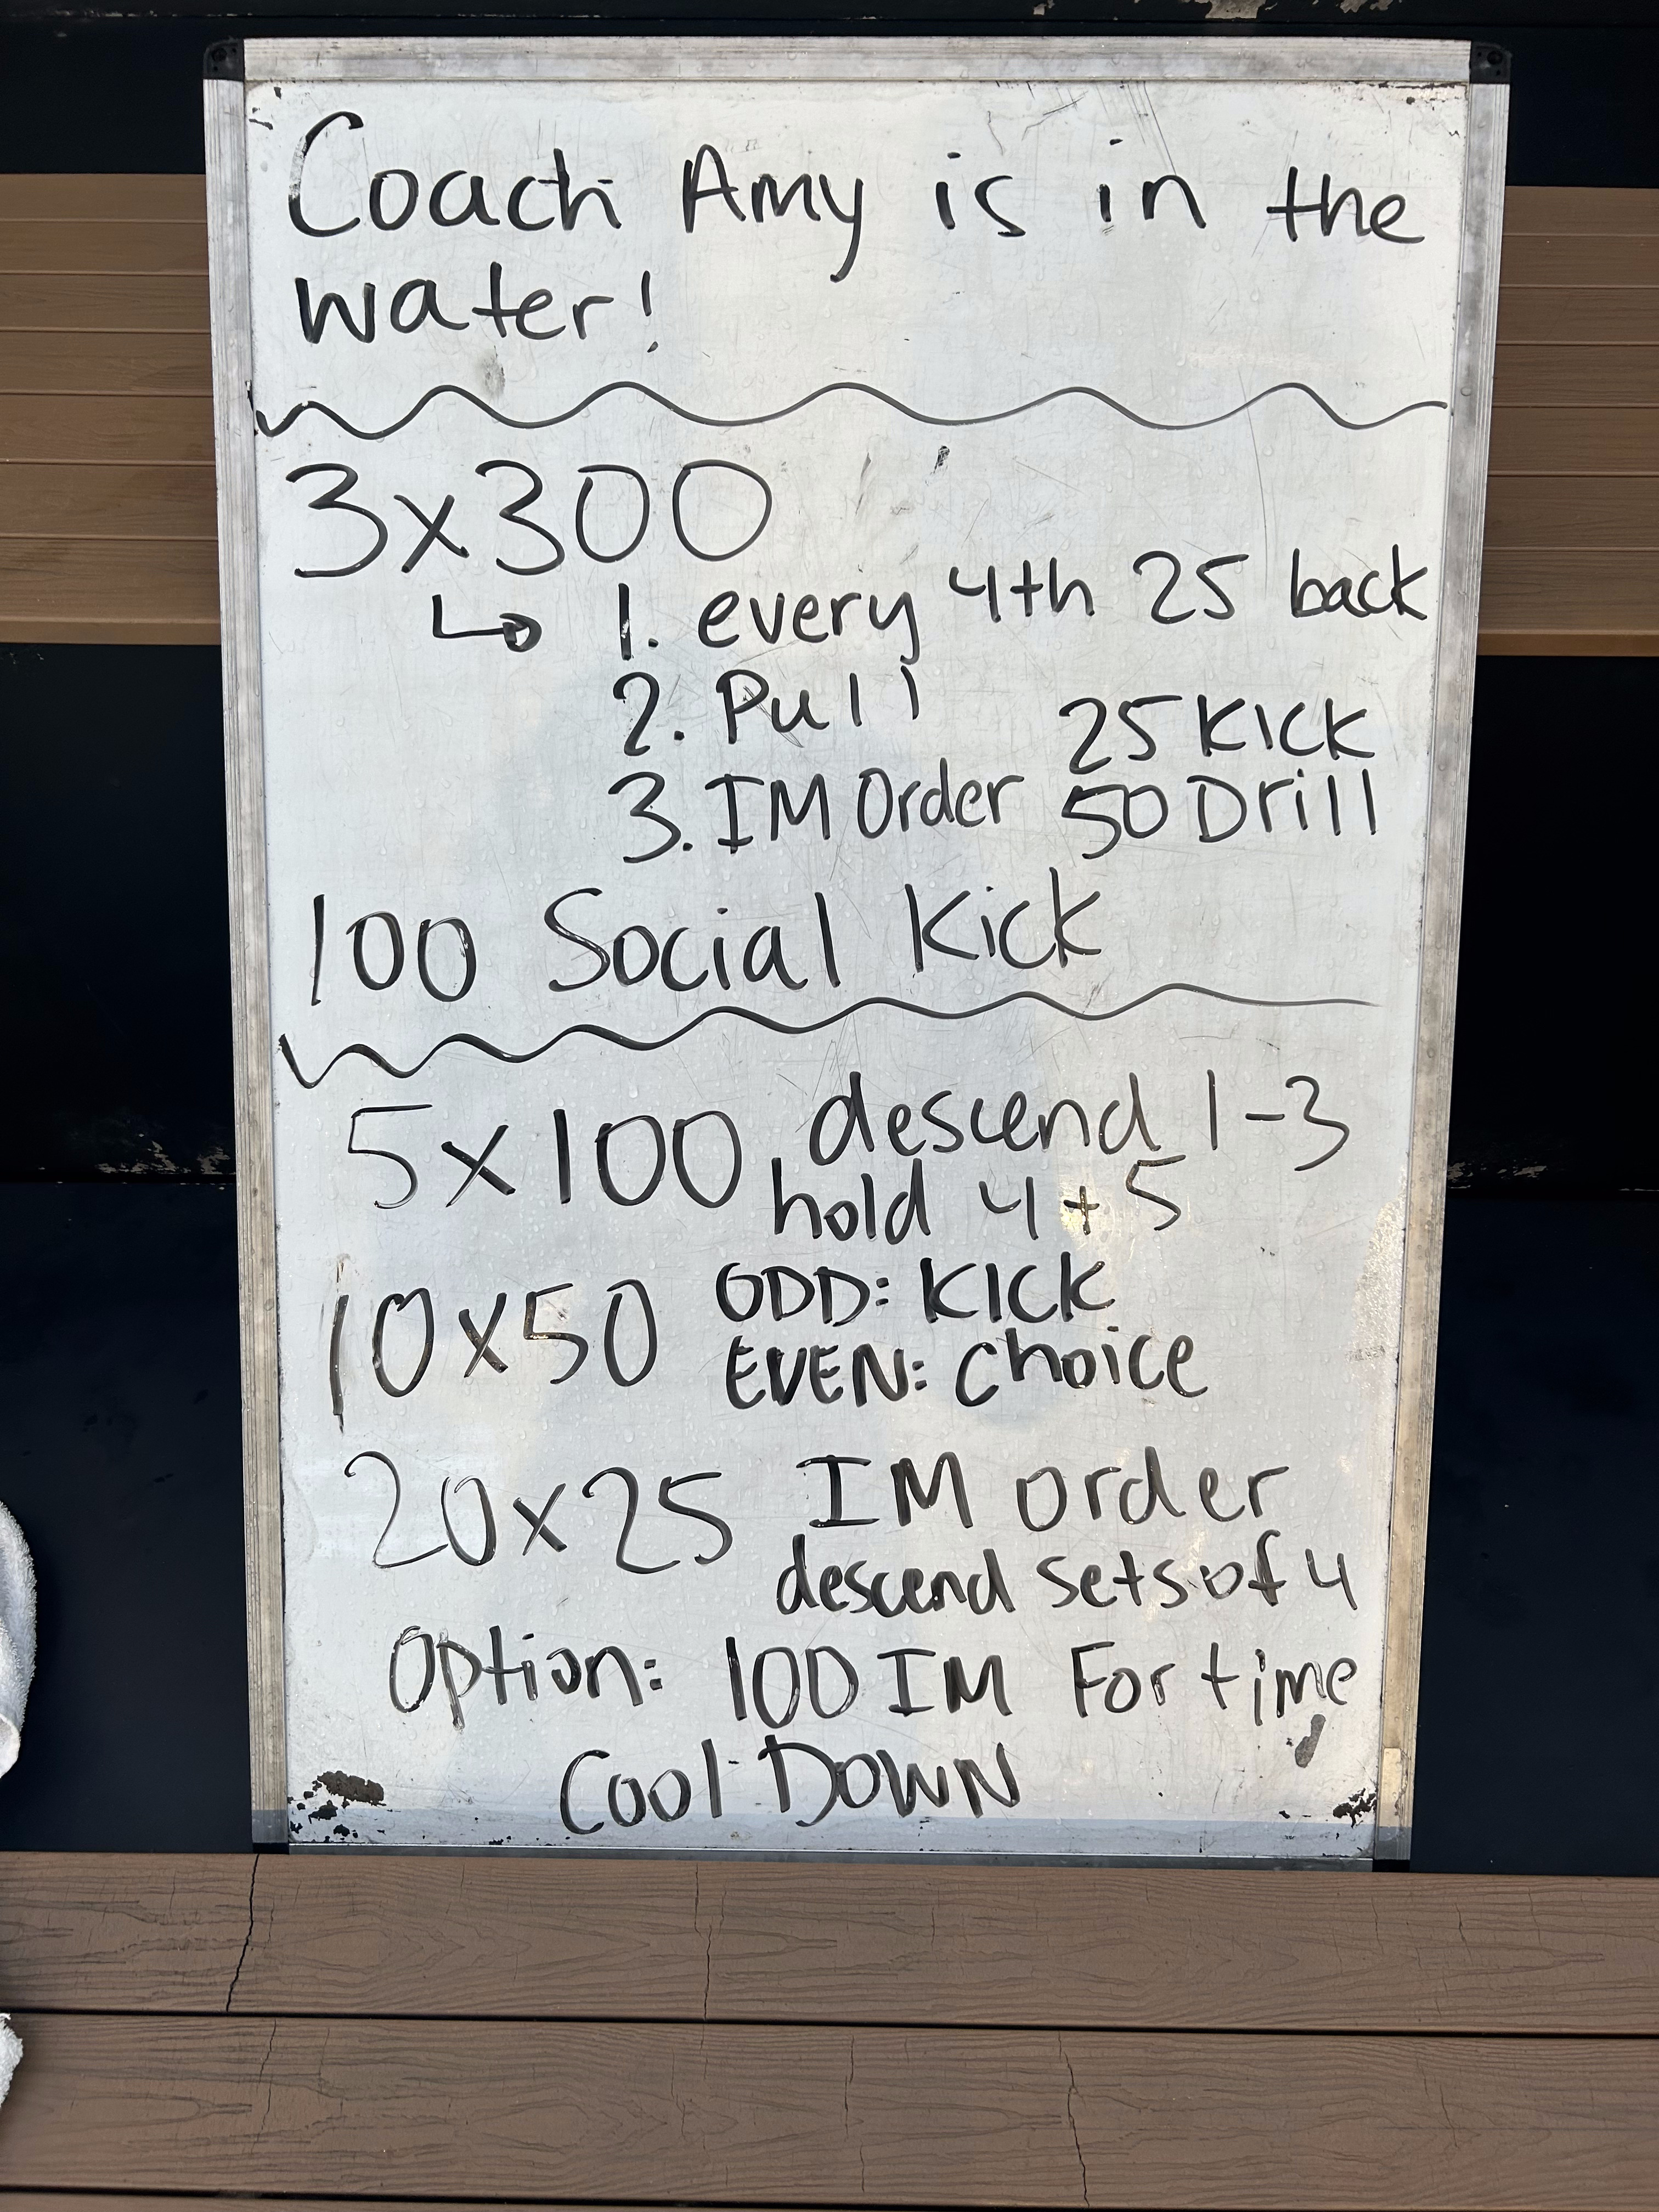 Coach Amy is in the
water!
3x300
↳ 1. every 4th 25 back
2. Pull
3. IM Order 25 Kick
50 Drill
100 Social Kick
5x100 descend 1-3
hold 4+5
10x50 ODD: Kick
EVEN: choice
20x25 IM order
descend sets of 4
Option: 100 IM For time
Cool DOWN